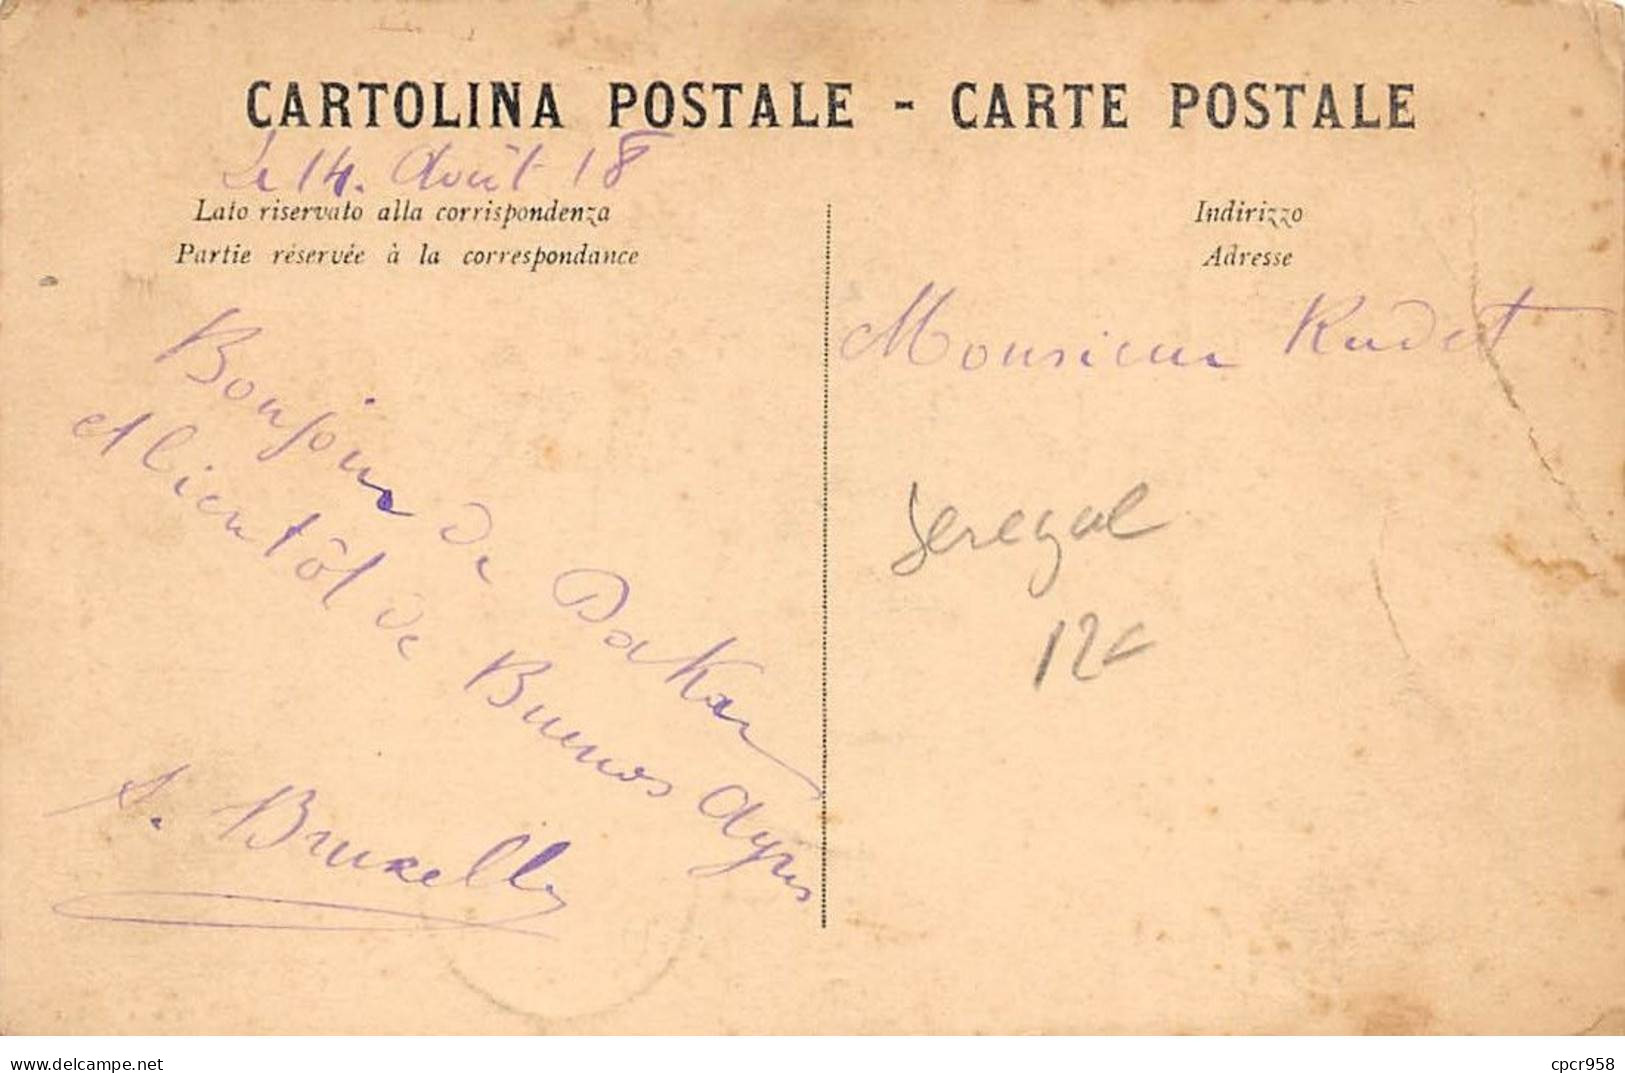 CARTOLINA POSTALE - CARTE POSTALE
Le 14. Août 18
Lato riservato alla corrispondenza
Partie réservée à la correspondance
Bonjour de Dakar
et bientôt de Buenos Ayres
Indirizzo
Adresse
Monsieur Rudet
Senegal
12€
www.delcampe.net
cpcr958